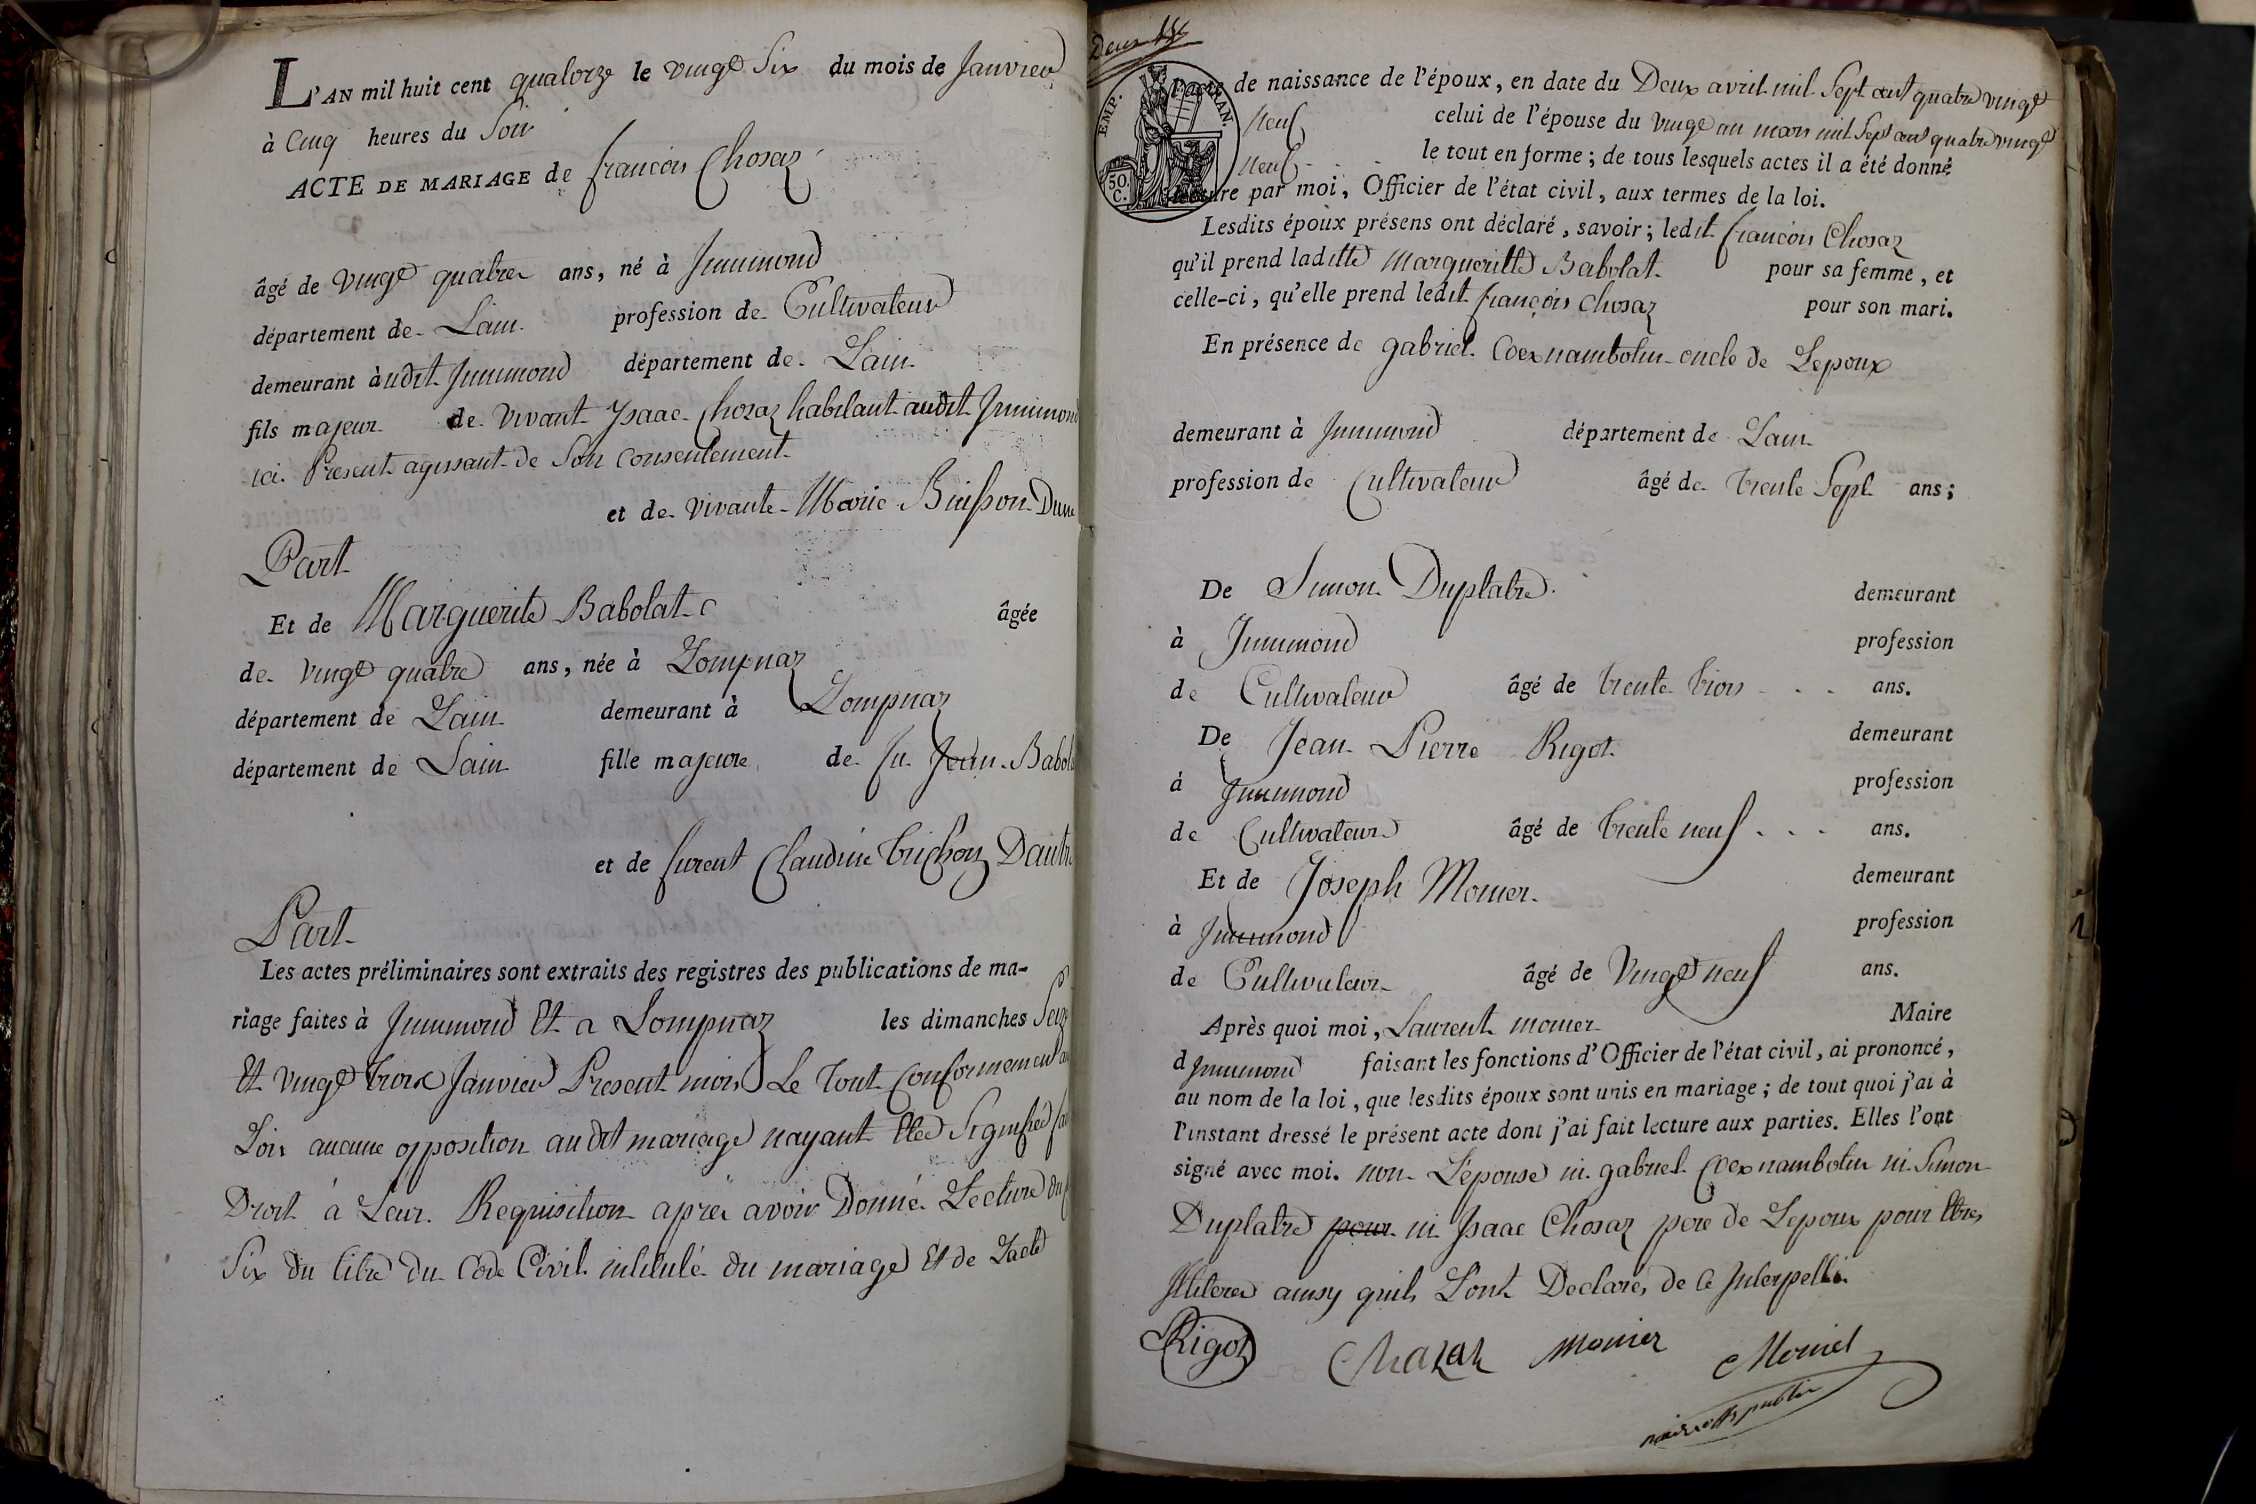 L'AN mil huit cent quatorze le vingt Six du mois de Janvier
à Cinq heures du Soir
ACTE DE MARIAGE de francois Chosaz
âgé de vingt quatre ans, né à Innimond
département de Lain profession de Cultivateur
demeurant àudit Innimond département de Lain
fils majeur de vivant Isaac Chosaz habitant audit Innimond
ici Present agissant de Son Consentement
et de vivante Marie Buisson Dune
Part
Et de Marguerite Babolat âgée
de vingt quatre ans, née à Lompnaz
département de Lain demeurant à Lompnaz
département de Lain fille majeure de fu Jean Babola
et de furent Claudine trichon Dautre
Part
Les actes préliminaires sont extraits des registres des publications de ma-
riage faites à Innimond Et a Lompnaz les dimanches Seize
Et vingt trois Janvier Present mois Le tout Conformement
Loix aucune opposition audit mariage nayant Eted Signified
Droit à Leur Requisition aprés avoir Donné Lecture du
Six du titre du Code Civil intitulé du mariage Et de Lacte
EMP. FRAN.
50. C.
l'acte de naissance de l'époux, en date du Deux avril mil Sept cent quatre vingt
Neuf celui de l'épouse du vingt un mars mil Sept cent quatre vingt
Neuf le tout en forme ; de tous lesquels actes il a été donné
lecture par moi, Officier de l'état civil, aux termes de la loi.
Lesdits époux présens ont déclaré, savoir ; ledit francois Chosaz
qu'il prend laditte Margueritte Babolat pour sa femme, et
celle-ci, qu'elle prend ledit françois Chosaz pour son mari.
En présence de gabriel Coexnambotin oncle de Lepoux
demeurant à Innimond département de Lain
profession de Cultivateur âgé de trente Sept ans ;
De Simon Duplatre demeurant
à Innimond profession
de Cultivateur âgé de trente trois ans.
De Jean Pierre Rigot demeurant
à Innimond profession
de Cultivateur âgé de trente neuf ans.
Et de Joseph Monier demeurant
à Innimond profession
de Cultivateur âgé de vingt neuf ans.
Après quoi moi, Laurent monier Maire
d Innimond faisant les fonctions d'Officier de l'état civil, ai prononcé,
au nom de la loi, que lesdits époux sont unis en mariage ; de tout quoi j'ai à
l'instant dressé le présent acte dont j'ai fait lecture aux parties. Elles l'ont
signé avec moi. non L'epouse ni gabriel Coexnambotin ni Simon
Duplatre pour ni Isaac Chosaz pere de Lepoux pour Etre
Illiteres ainsy quils L'ont Declares de ce Interpellé.
Rigot Chazaz monier Monier